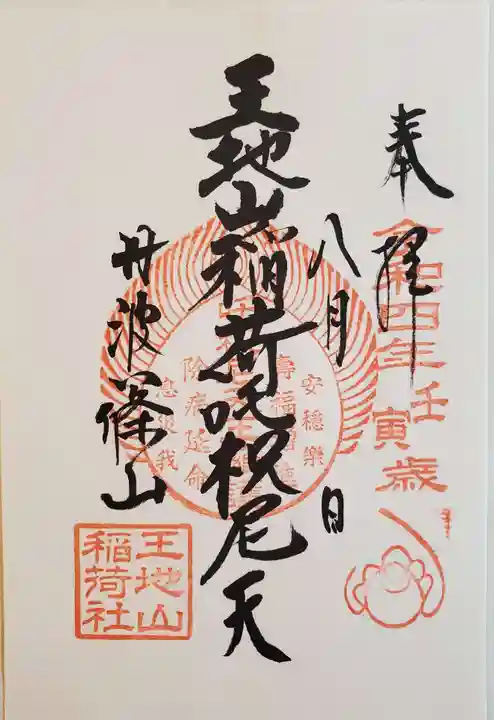 奉拝
令和四年
壬寅歳
八月 日
王地山稲荷吒枳尼天
安穏樂
除病延命
息災我
丹波篠山
王地山
稲荷社